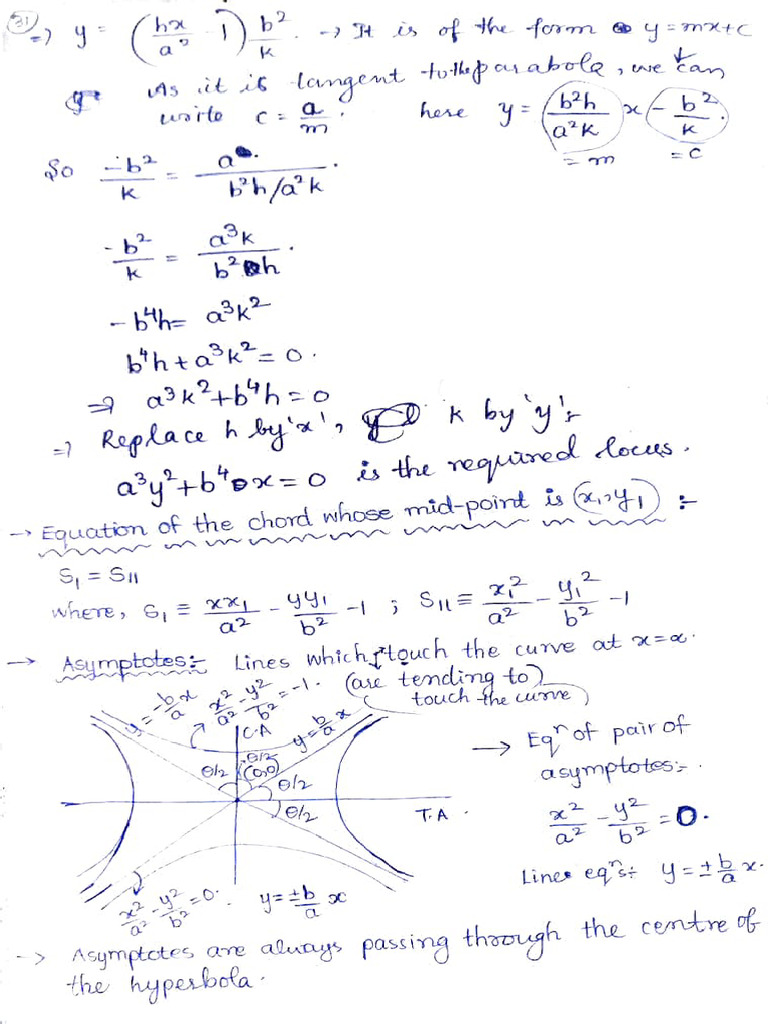 31
=> y = (hx/a² - 1) b²/k. → It is of the form y=mx+c
As it is tangent to the parabola, we can
write c = a/m. here y = (b²h/a²k) x (- b²/k).
= m = c
So -b²/k = a/(b²h/a²k).
-b²/k = a³k/b²h.
-b⁴h = a³k²
b⁴h + a³k² = 0.
⇒ a³k²+b⁴h = 0
⇒ Replace h by 'x', k by 'y':-
a³y²+b⁴x = 0 is the required locus.
→ Equation of the chord whose mid-point is (x₁,y₁) :-
S₁ = S₁₁
where, S₁ ≡ xx₁/a² - yy₁/b² -1 ; S₁₁ ≡ x₁²/a² - y₁²/b² -1
→ Asymptotes:- Lines which touch the curve at x=∝.
(are tending to)
touch the curve
y=-b/a x
x²/a² - y²/b² = -1.
C.A
y=b/a x
θ/2
θ/2
(0,0)
θ/2
θ/2
T.A.
→ Eqⁿ of pair of
asymptotes:-
x²/a² - y²/b² = 0.
Lines eqⁿs:- y=±b/a x.
x²/a² - y²/b² = 0. y=±b/a x
→ Asymptotes are always passing through the centre of
the hyperbola.